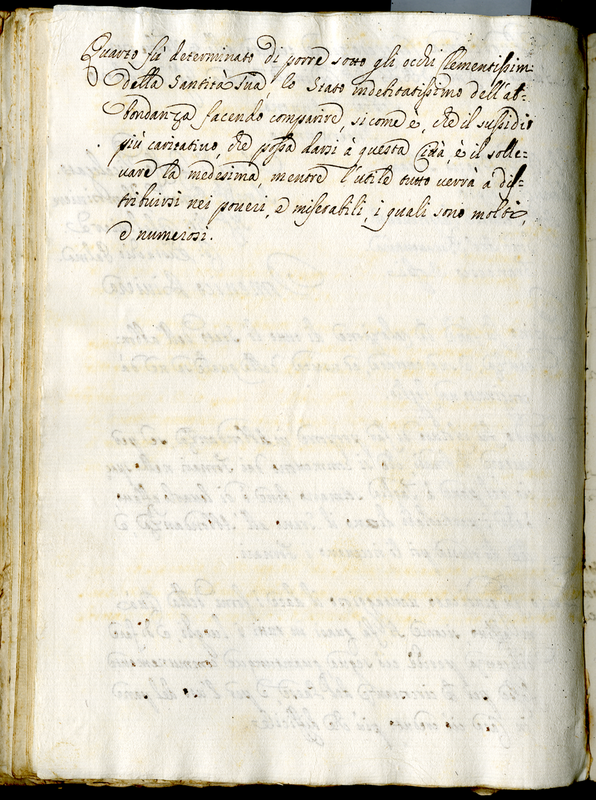 Quarto fù determinato di porre sotto gli occhi Clementissimi
della Santità Sua, lo Stato indebitatissimo dell'ab-
bondanza facendo comparire, sicome è, che il sussidio
più caritativo, che possa darsi à questa Città, è il solle-
vare la medesima, mentre l'utile tutto verrà a dis-
tribuirsi nei poueri, e miserabili, i quali sono molti,
e numerosi.